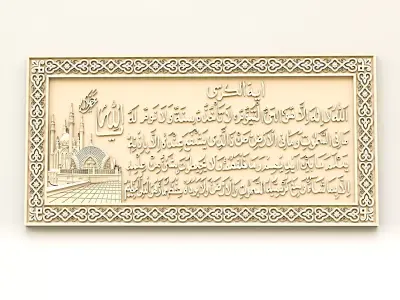 آية الكرسي
الله لا إله إلا هو الحي القيوم لا تأخذه سنة ولا نوم له
ما في السموات وما في الأرض من ذا الذي يشفع عنده إلا بإذنه
يعلم ما بين أيديهم وما خلفهم ولا يحيطون بشيء من علمه
إلا بما شاء وسع كرسيه السموات والأرض ولا يؤده حفظهما وهو العلي العظيم
الله